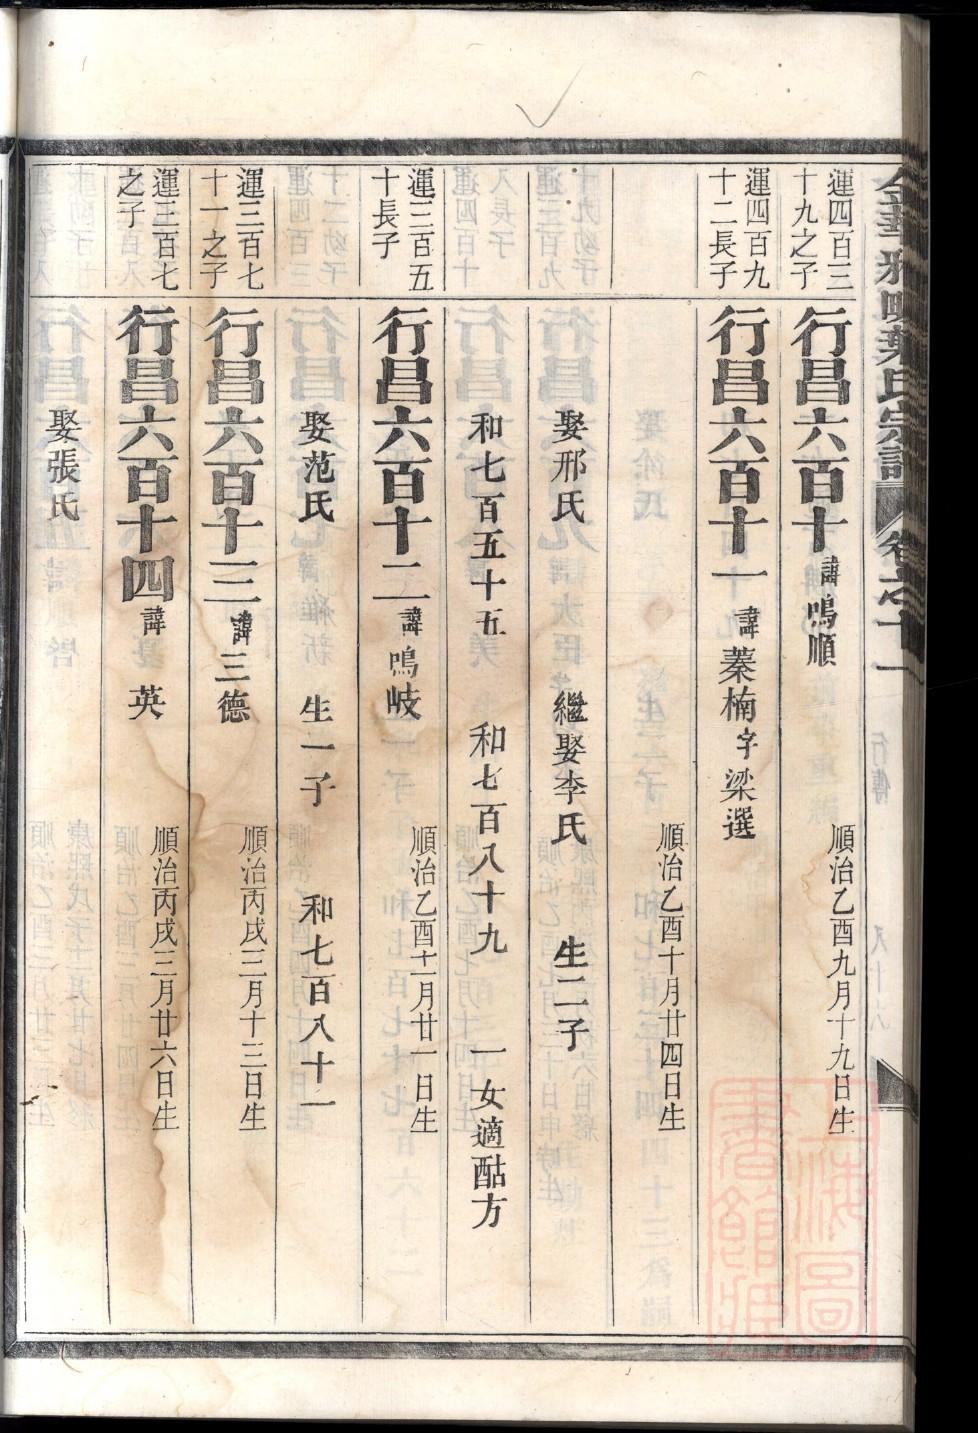 運四百三
十九之子
行昌六百十
諱
鳴順
順治乙酉九月十九日生
運四百九
十二長子
行昌六百十一
諱
蓁楠字梁選
順治乙酉十月廿四日生
娶邢氏
繼娶李氏
生二子
和七百五十五
和七百八十九
一女適酤方
運三百五
十長子
行昌六百十二
諱
鳴岐
順治乙酉十二月廿一日生
娶范氏
生一子
和七百八十一
運三百七
十一之子
行昌六百十三
諱
三德
順治丙戌三月十三日生
運三百七
之子
行昌六百十四
諱
英
順治丙戌三月廿六日生
娶張氏